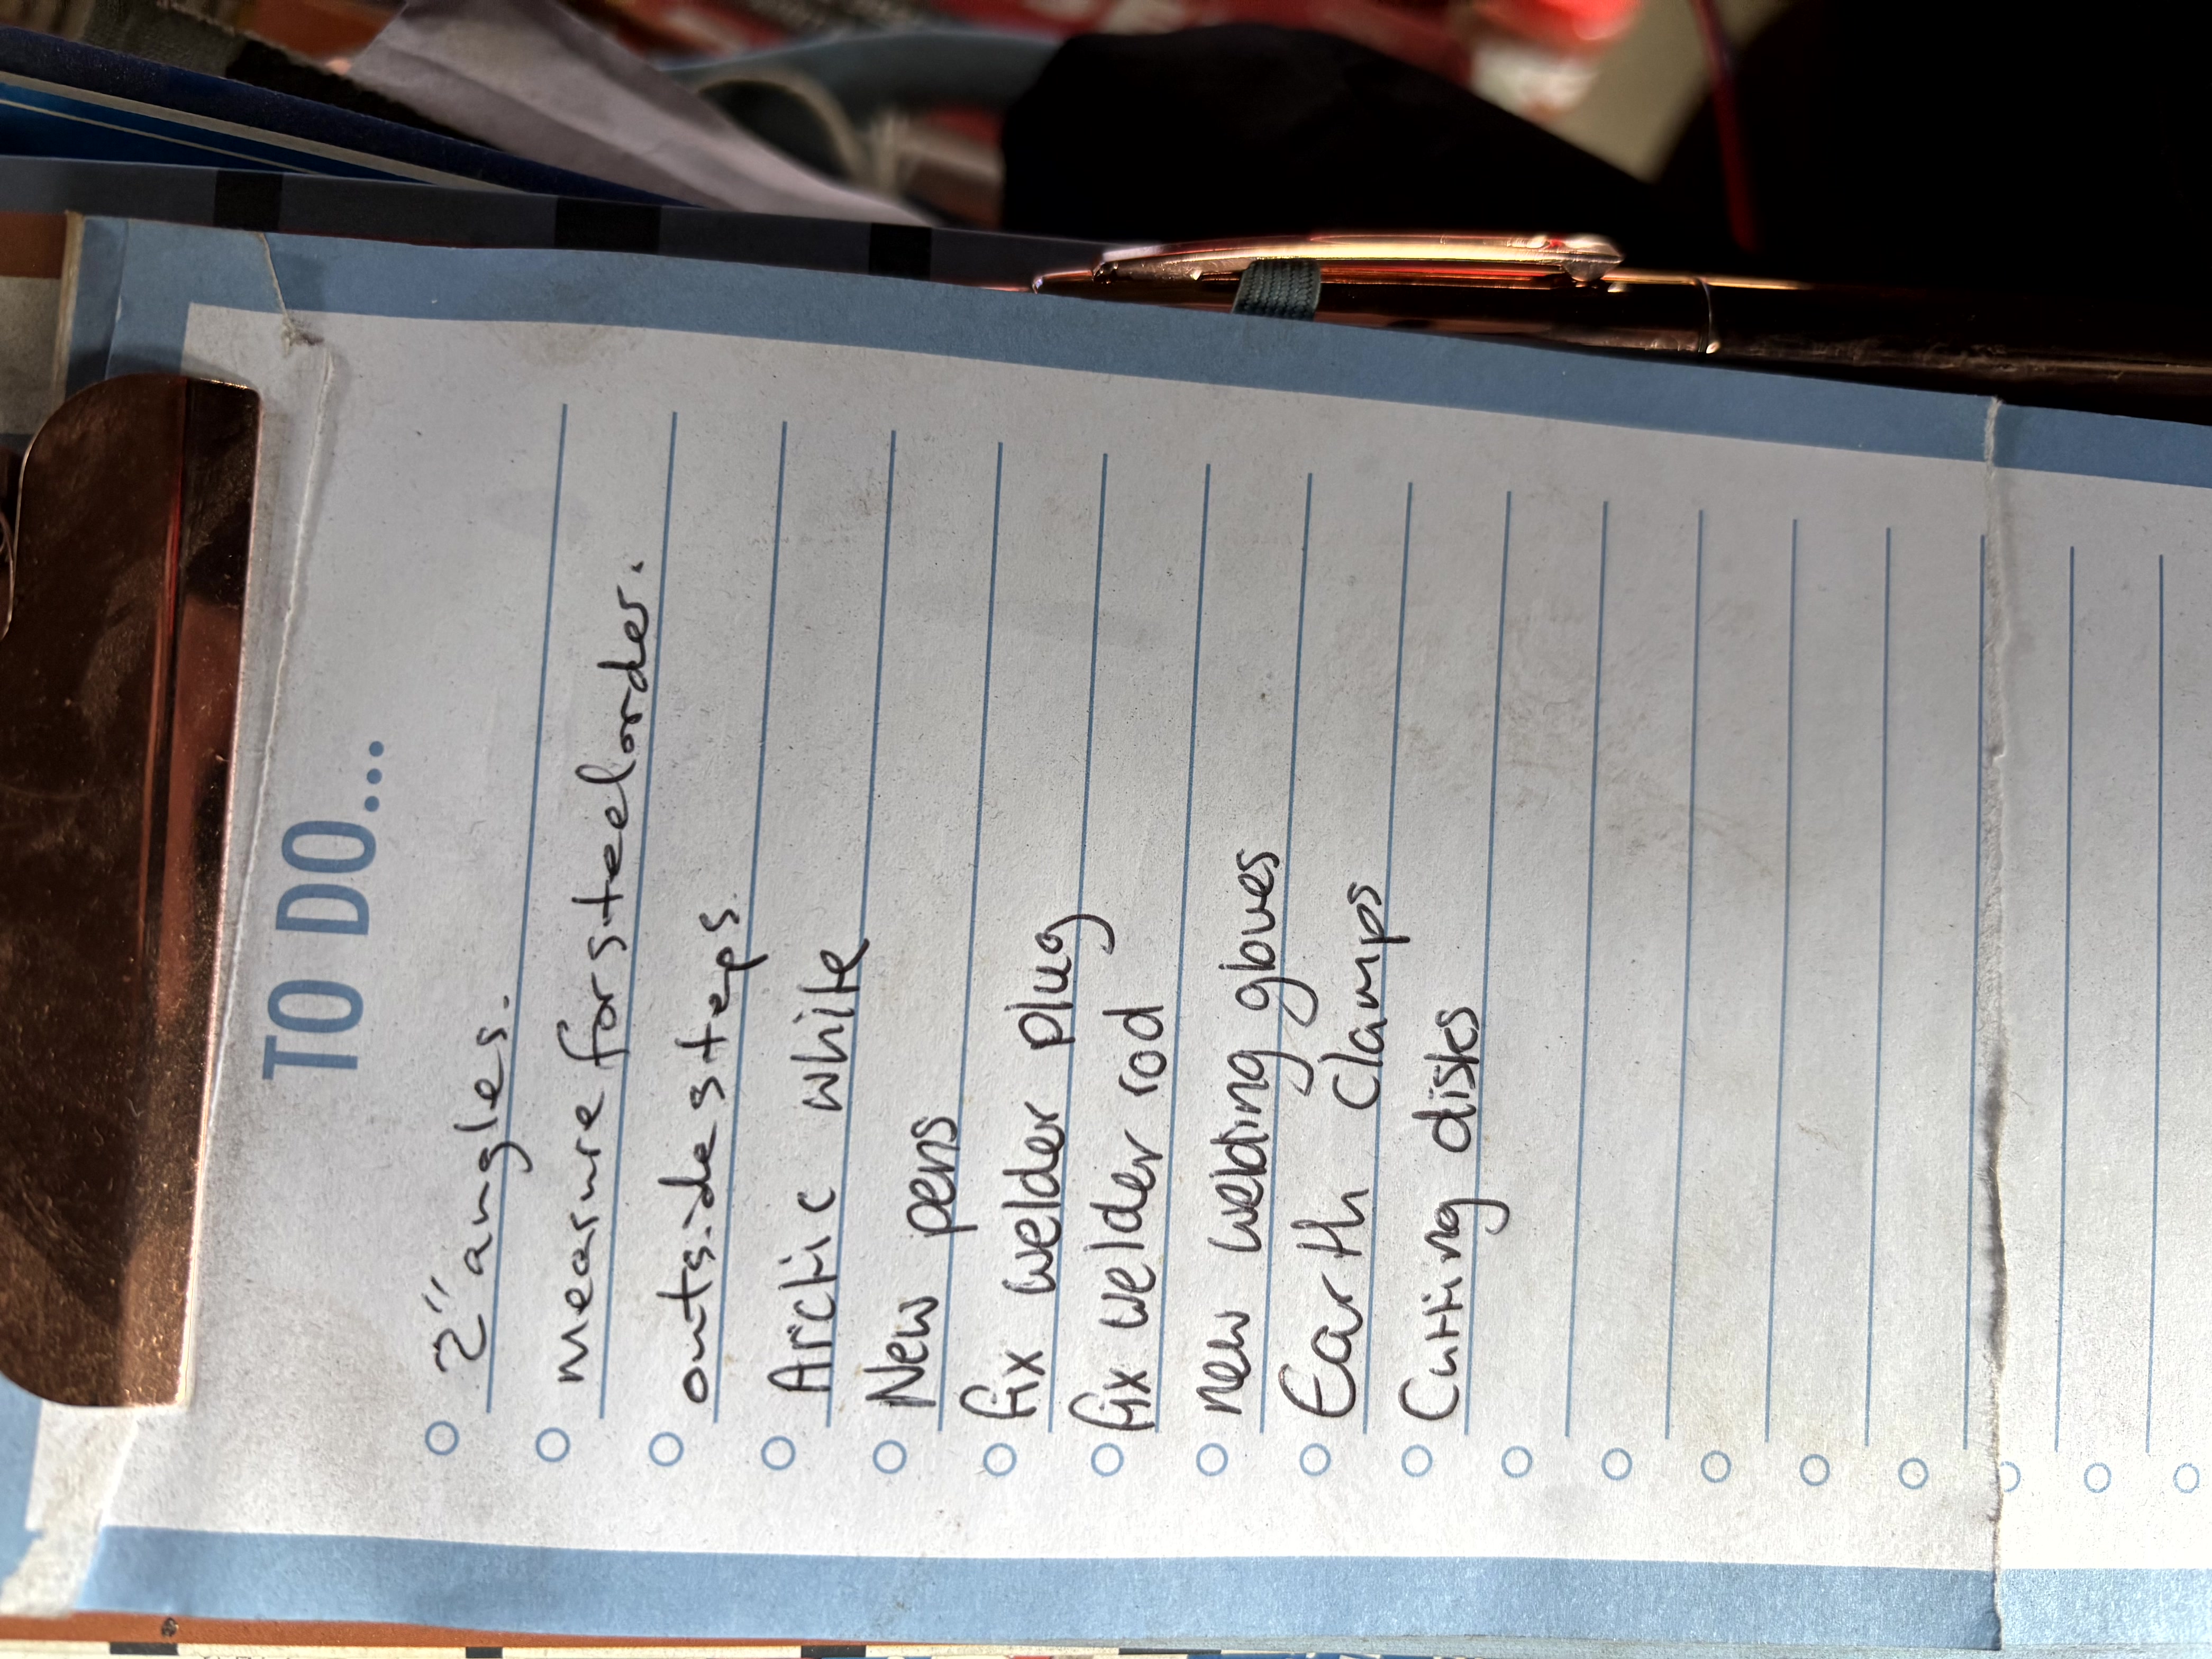 TO DO...
2" angles.
measure for steel order.
outside steps
Arctic white
New pens
fix welder plug
fix welder rod
new welding gloves
Earth clamps
Cutting disks